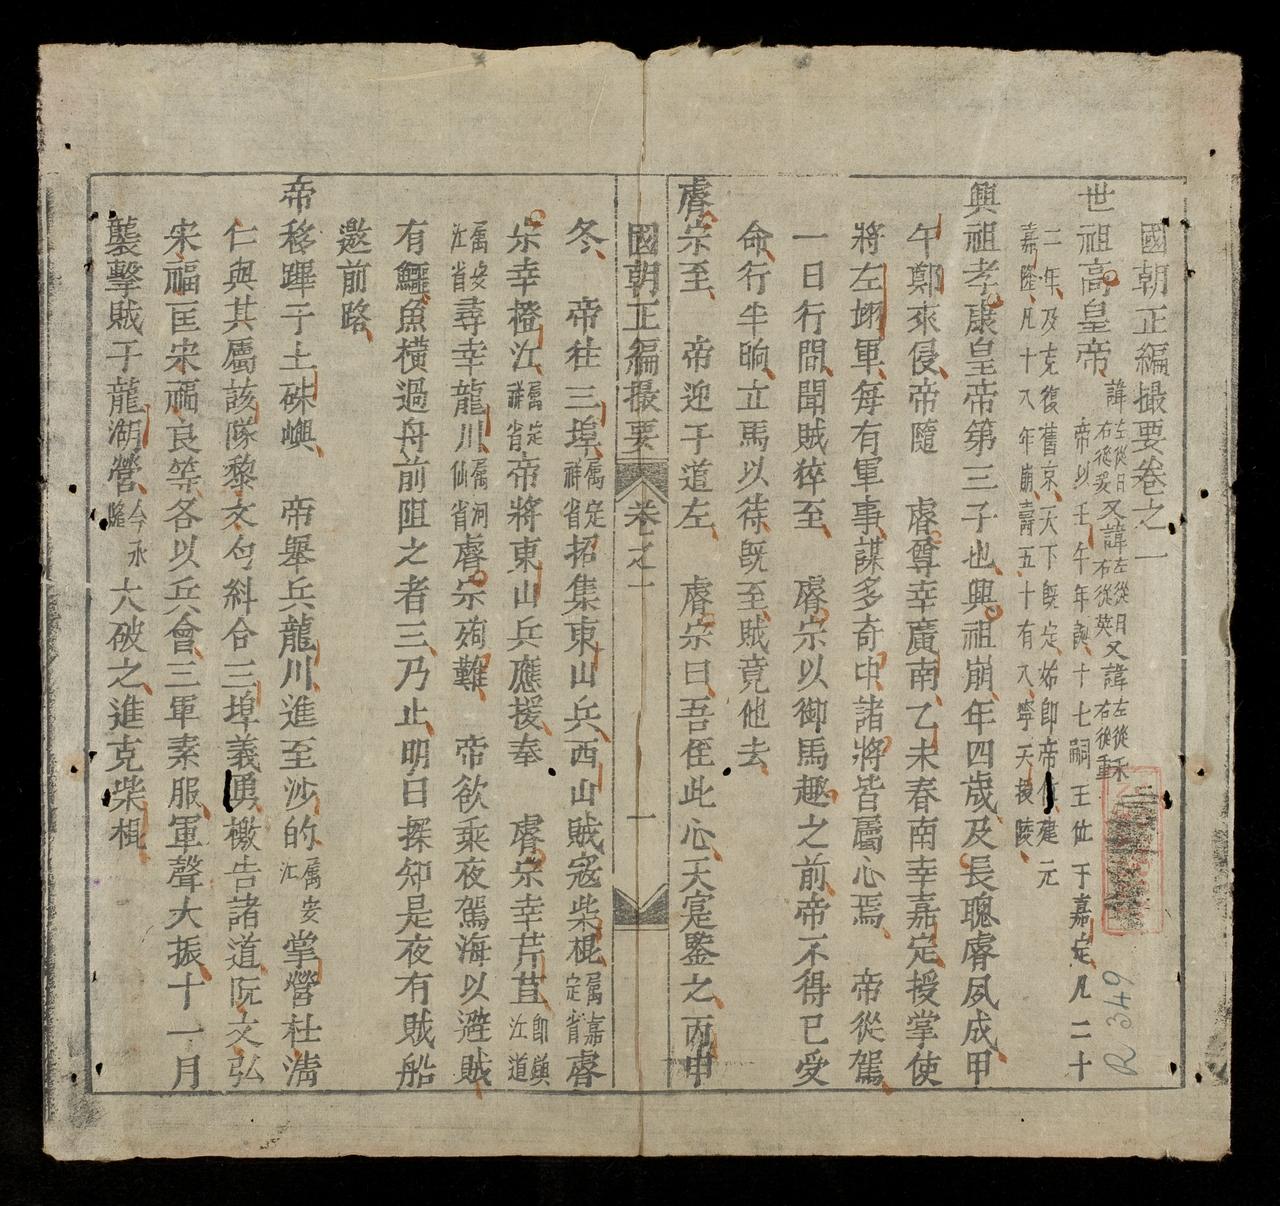 國朝正編撮要卷之一
世祖高皇帝 諱左從日右從爰又諱左從日右從英又諱左從禾右從重 帝以壬午年誕十七嗣王位于嘉定凡二十
二年及克復舊京天下既定始即帝位建元
嘉隆凡十八年崩壽五十有八寧天授陵
興祖孝康皇帝第三子也興祖崩年四歲及長聰睿夙成甲
午鄭來侵帝隨 睿尊幸廣南乙未春南幸嘉定授掌使
將左翊軍每有軍事謀多奇中諸將皆屬心焉 帝從駕
一日行間聞賊猝至 睿宗以御馬趣之前帝不得已受
命行半晌立馬以待既至賊竟他去
睿宗至 帝迎于道左 睿宗曰吾侄此心天寔鑒之丙申
國朝正編撮要 卷之一 一
冬 帝往三埠屬定祥省招集東山兵西山賊寇柴棍屬嘉定省睿
宗幸橙江屬定祥省帝將東山兵應援奉 睿宗幸芹苴即鎮江道
屬安江省尋幸龍川屬河仙省睿宗殉難 帝欲乘夜駕海以避賊
有鱷魚橫過舟前阻之者三乃止明日探知是夜有賊船
邀前路
帝移蹕于土硃嶼 帝舉兵龍川進至沙的屬安江掌營杜清
仁與其屬該隊黎文勻糾合三埠義勇檄告諸道阮文弘
宋福匡宋福良等各以兵會三軍素服軍聲大振十一月
襲擊賊于龍湖營今永隆大破之進克柴棍
R 349